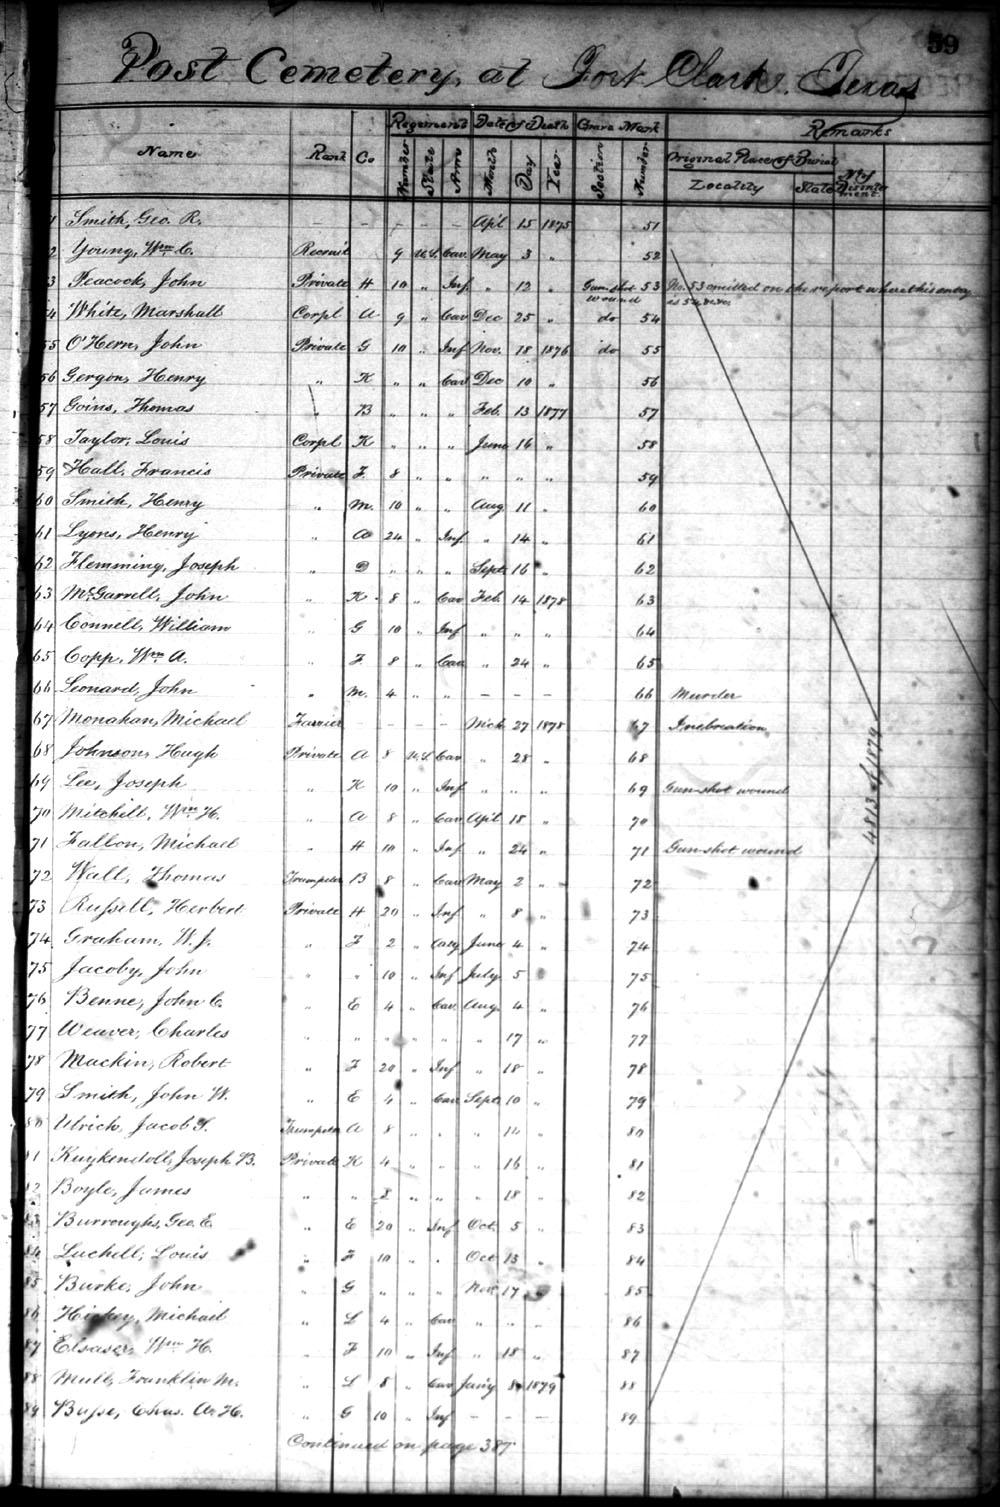 59
Post Cemetery, at Fort Clark. Texas
Regement Date of Death Grave Mark Remarks
Name Rank Co Number State Arm Month Day Year Section Number Original Place of Burial No of Disinterment.
Locality State
1 Smith, Geo. R. – – – – Apl 15 1875 51
2 Young, Wm C. Recruit 9 U.S. Cav. May 3 " 52
3 Peacock, John Private H 10 " Inf. " 12 " Gun-shot wound 53 No. 53 omitted on the report where this entry is 54
4 White, Marshall Corpl A 9 " Cav Dec 25 " do 54
55 O'Hern, John Private G 10 " Inf Nov. 18 1876 do 55
56 Gergon, Henry " K " " Cav Dec 10 " 56
57 Goins, Thomas " B " " " Feb. 13 1877 57
58 Taylor, Louis Corpl K " " " June 16 " 58
59 Hall, Francis Private F. 8 " " " " " 59
60 Smith, Henry " M. 10 " " Aug 11 " 60
61 Lyons, Henry " A 24 " Inf " 14 " 61
62 Flemming, Joseph " D " " " Sept. 16 " 62
63 McGarrell, John " K 8 " Cav Feb. 14 1878 63
64 Connell, William " G 10 " Inf " " " 64
65 Copp, Wm A. " F. 8 " Cav " 24 " 65
66 Leonard, John " M. 4 " " – – – 66 Murder
67 Monahan, Michael Farrier – – – – Mch 27 1878 67 Inebreation
68 Johnson, Hugh Private A 8 U.S. Cav " 28 " 68
69 Lee, Joseph " K 10 " Inf " " " 69 Gun-shot wound
70 Mitchell, Wm H. " A 8 " Cav Apil 18 " 70
71 Fallon, Michael " H 10 " Inf " 24 " 71 Gun-shot wound
72 Wall, Thomas Trumpeter B 8 " Cav May 2 " 72
73 Russell, Herbert Private H 20 " Inf " 8 " 73
74 Graham, W. J. " F 2 " Cavy June 4 " 74
75 Jacoby, John " " 10 " Inf July 5 " 75
76 Benne, John C. " E 4 " Cav Aug. 4 " 76
77 Weaver, Charles " " " " " " 17 " 77
78 Mackin, Robert " F 20 " Inf " 18 " 78
79 Smith, John W. " E 4 " Cav Sept. 10 " 79
80 Ulrich, Jacob F. Trumpeter A 8 " " " 14 " 80
81 Kuykendoll, Joseph B. Private K 4 " " " 16 " 81
82 Boyle, James " " 8 " " " 18 " 82
83 Burroughs, Geo. E. " E 20 " Inf Oct. 5 " 83
84 Luchell, Louis " F 10 " " Oct 13 " 84
85 Burke, John " G " " " Nov. 17 " 85
86 Hickey, Michael " L 4 " Cav " " " 86
87 Elsaser, Wm H. " F 10 " Inf " 18 " 87
88 Mull, Franklin M. " L 8 " Cav Jan'y 8 1879 88
89 Busse, Chas. A. H. " G 10 " Inf – – – 89
4813 of 1879
Continued on page 387